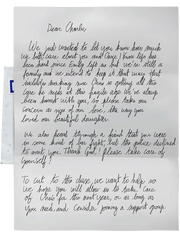 Dear Charlie,
We just wanted to let you know how much
we both care about you and Chris. I know life has
been hard since Emily left us but we're still a
family and we intend to keep it that way. That
includes making sure Chris is getting all the
care he needs at this fragile age. We've always
been honest with you, so please take our
concern as sign of our love, the way you
loved our beautiful daughter.
We also heard through a friend that you were
in some kind of bar fight, but the police declined
to arrest you. Thank God! Please take care of
yourself!
To cut to the chase, we want to help so
we hope you will allow us to take care
of Chris for the next year, or as long as
you need, and consider joining a support group.